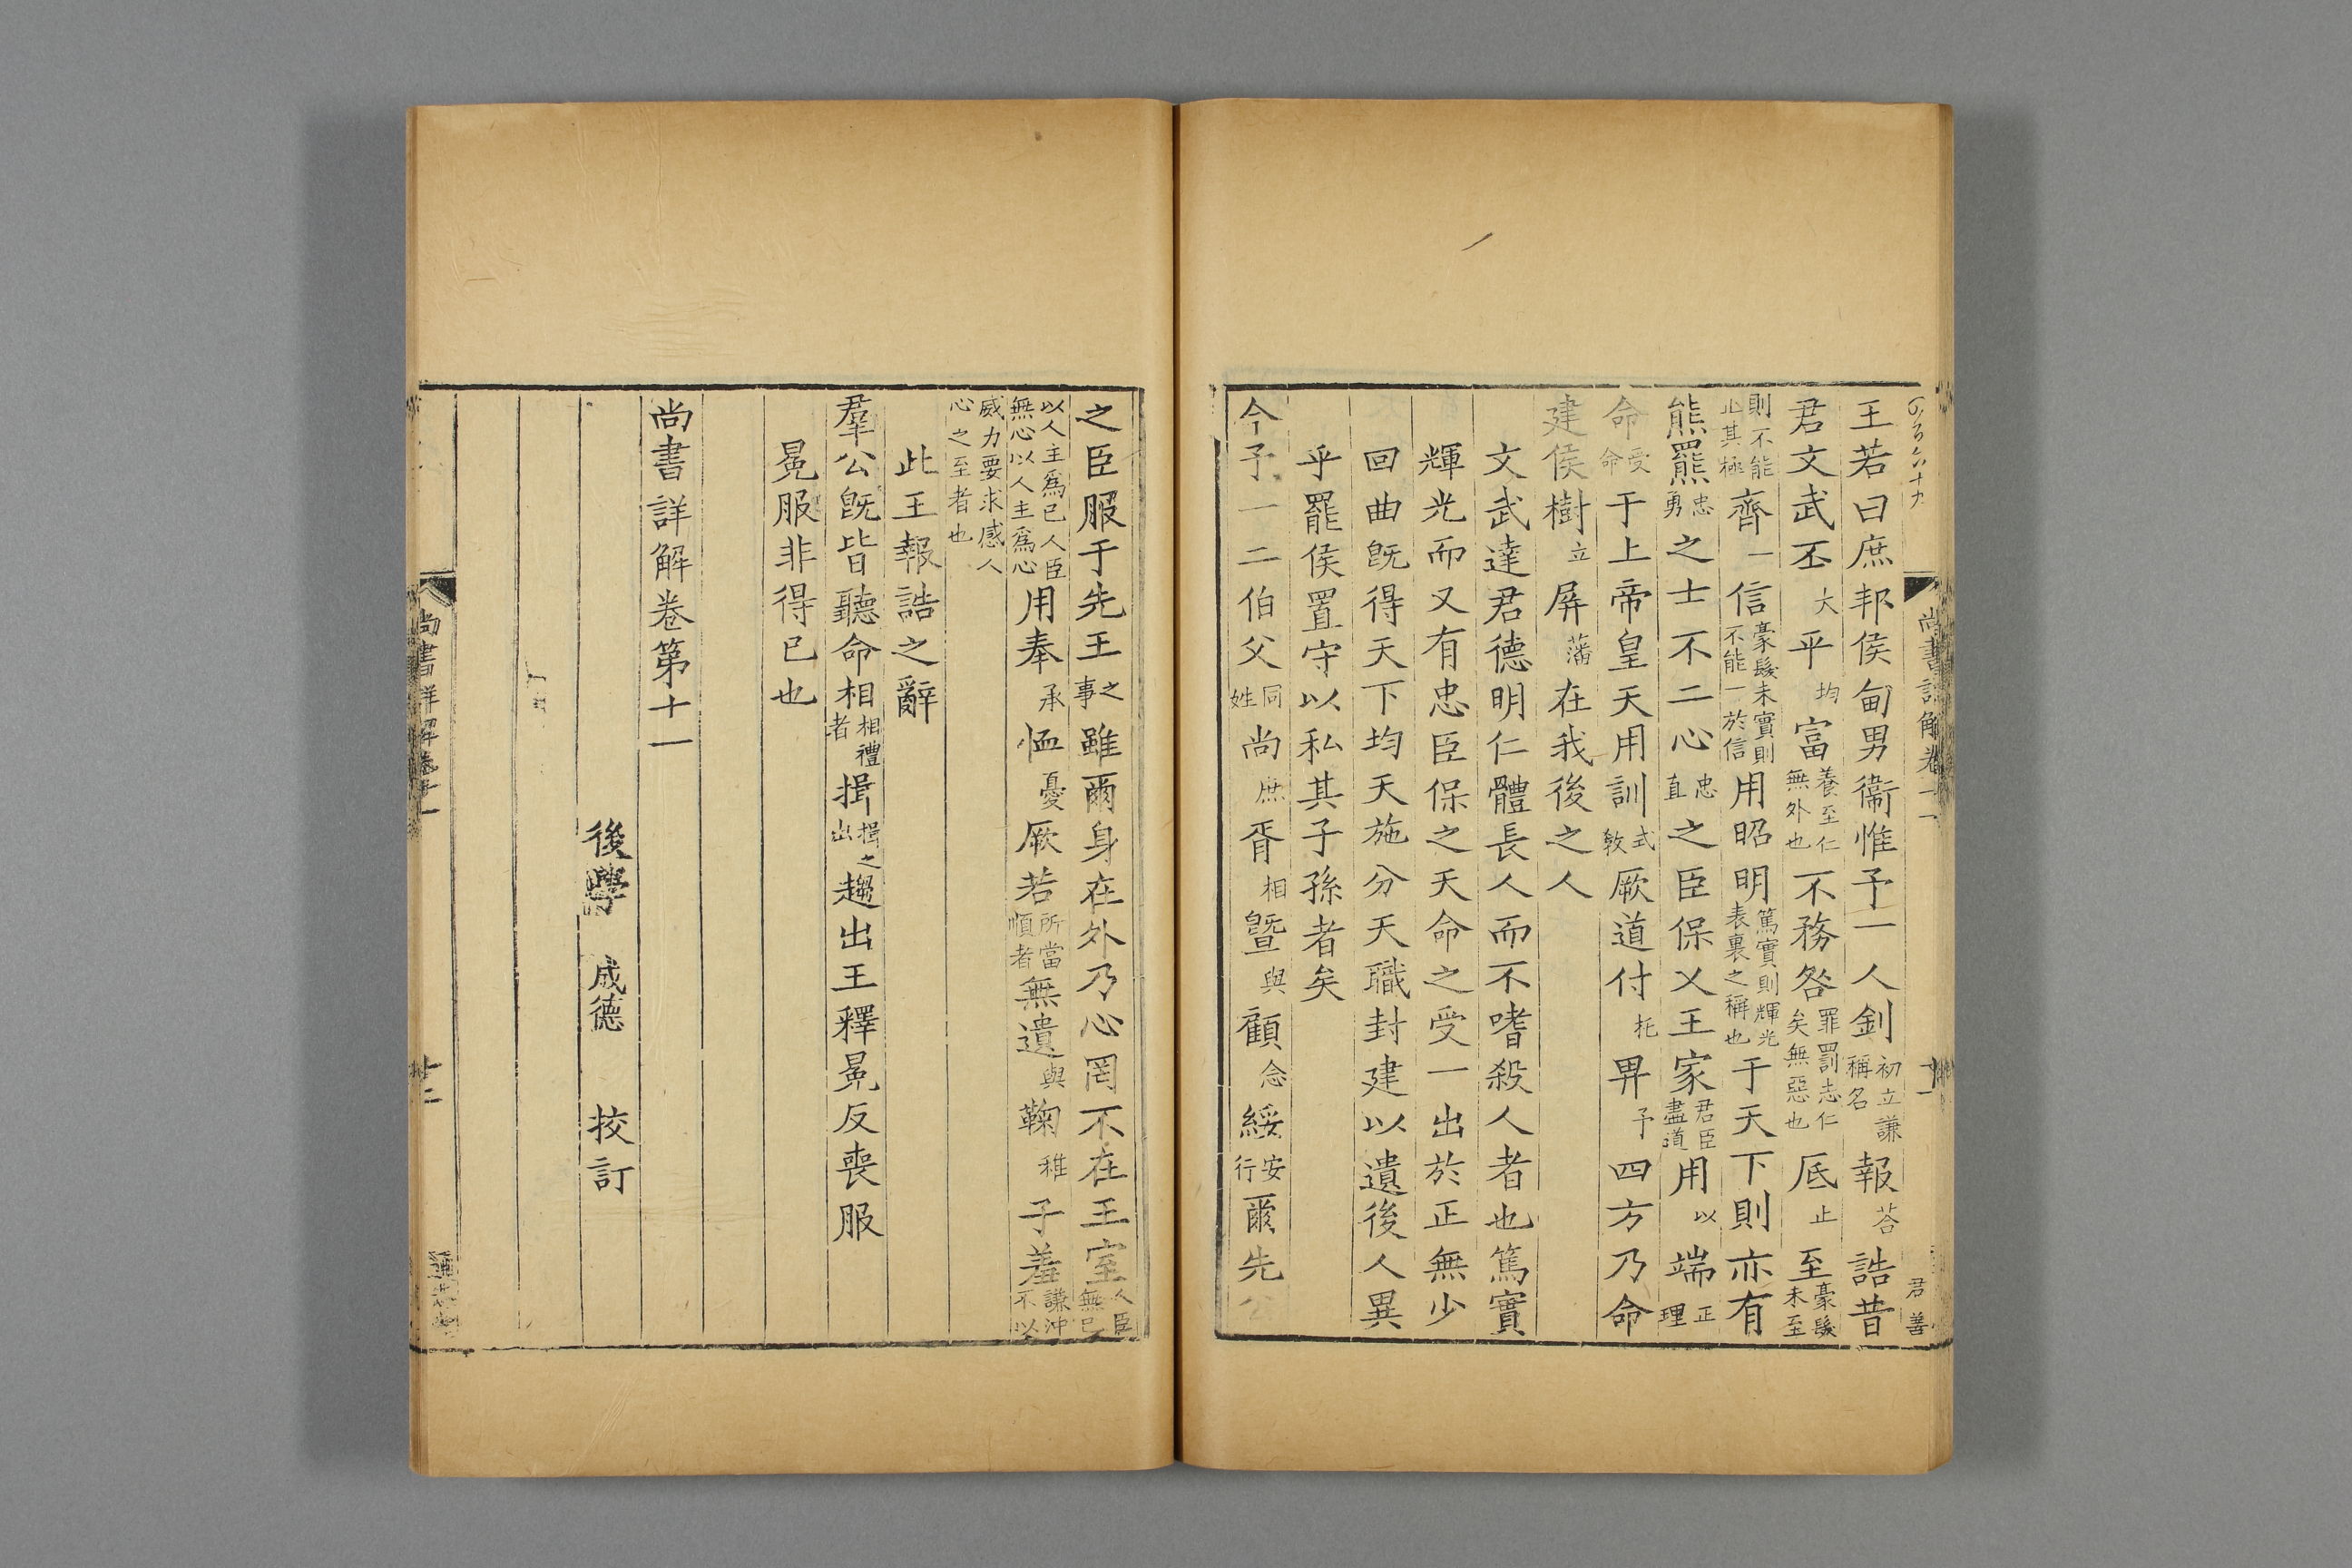 王若曰庶邦侯甸男衞惟予一人釗初立謙稱名報荅誥昔
君文武丕大平均富養至仁無外也不務咎罪罰志仁矣無惡也厎止至豪髮未至
則不能止其極齊一信豪髮未實則不能一於信用昭明篤實則輝光表裏之稱也于天下則亦有
熊羆忠勇之士不二心忠直之臣保乂王家君臣盡道用以端正理
命受命于上帝皇天用訓式敎厥道付托畀予四方乃命
建侯樹立屏藩在我後之人
文武達君德明仁體長人而不嗜殺人者也篤實
輝光而又有忠臣保之天命之受一出於正無少
回曲旣得天下均天施分天職封建以遺後人異
乎罷侯置守以私其子孫者矣
今予一二伯父同姓尚庶胥相曁與顧念綏安行爾先公
尚書詳解卷十一
十一
君善
之臣服于先王之事雖爾身在外乃心罔不在王室人臣無已
以人主爲已人臣無心以人主爲心用奉承恤憂厥若所當順者無遺與鞠稚子羞謙沖不以
威力要求感人心之至者也
此王報誥之辭
羣公旣皆聽命相相禮者揖揖之出趨出王釋冕反喪服
冕服非得已也
尚書詳解卷第十一
後學 成德 挍訂
尚書詳解卷十一
十二